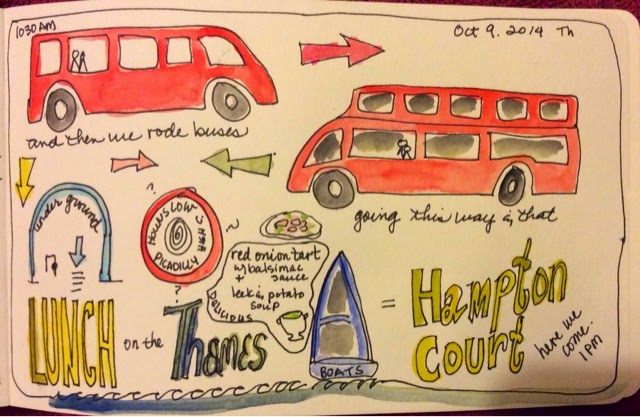 1030 AM
Oct 9. 2014 Th
and then we rode buses
going this way & that
under ground
?
HOUNSLOW
PICADILLY
?
red onion tart
w/ balsimac
+ sauce
leek & potato
soup
DELICIOUS
LUNCH on the Thames
BOATS
=
Hampton
Court
here we
come.
1PM